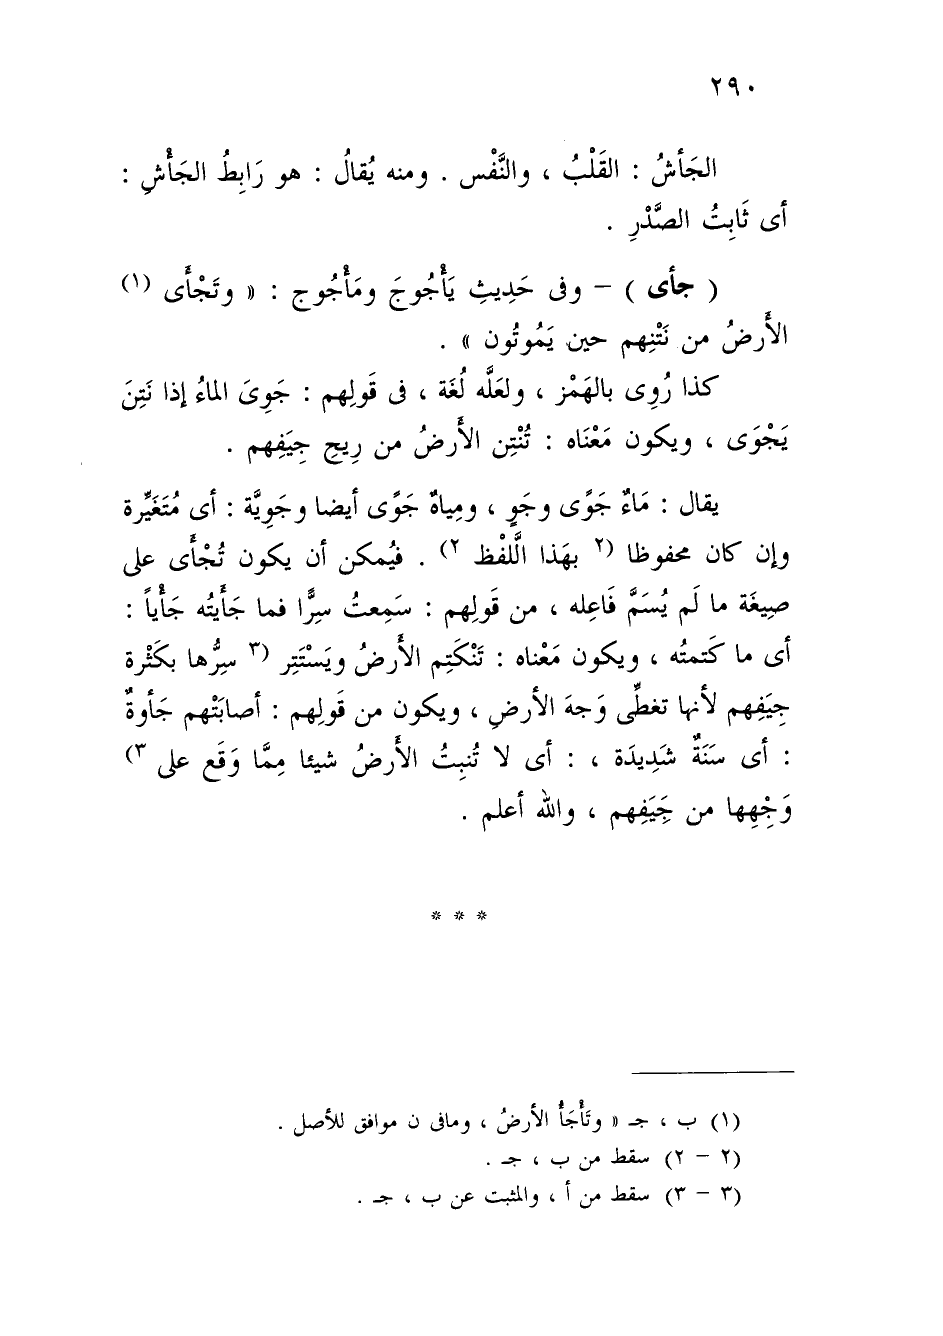 ٢٩٠
الجَأشُ : القَلْبُ ، والنَّفْس . ومنه يُقالُ : هو رَابِطُ الجَأْشِ :
أى ثَابِتُ الصَّدْرِ .
( جأى ) – وفى حَدِيثِ يَأْجُوجَ ومَأْجُوج : « وتَجْأَى (١)
الأَرضُ من نَتْنِهم حين يَمُوتُون » .
كذا رُوِى بالهَمْز ، ولعَلَّه لُغَة ، فى قَولِهم : جَوِىَ الماءُ إذا نَتِنَ
يَجْوَى ، ويكون مَعْنَاه : تُنْتِن الأَرضُ من رِيحِ جِيَفِهم .
يقال : مَاءٌ جَوًى وجَوٍ ، ومِياهٌ جَوًى أيضا وجَوِيَّة : أى مُتَغَيِّرة
وإن كان محفوظا (٢ بهَذا الَّلفْظ ٢) . فيُمكن أن يكون تُجْأَى على
صِيغَة ما لَم يُسَمَّ فَاعِله ، من قَولِهم : سَمِعتُ سِرًّا فما جَأَيتُه جَأْياً :
أى ما كَتمتُه ، ويكون مَعْناه : تَنْكَتِم الأَرضُ ويَسْتَتِر (٣ سِرُّها بكَثْرة
جِيَفِهم لأنها تغطِّى وَجهَ الأرضِ ، ويكون من قَولِهم : أصابَتْهم جَأوةٌ
: أى سَنَةٌ شَدِيدَة ، : أى لا تُنبِتُ الأَرضُ شيئا مِمَّا وَقَع على ٣)
وَجْهِها من جِيَفِهم ، والله أعلم .
* * *
(١) ب ، جـ « وتَأْجَأُ الأرضُ ، ومافى ن موافق للأصل .
(٢ – ٢) سقط من ب ، جـ .
(٣ – ٣) سقط من أ ، والمثبت عن ب ، جـ .